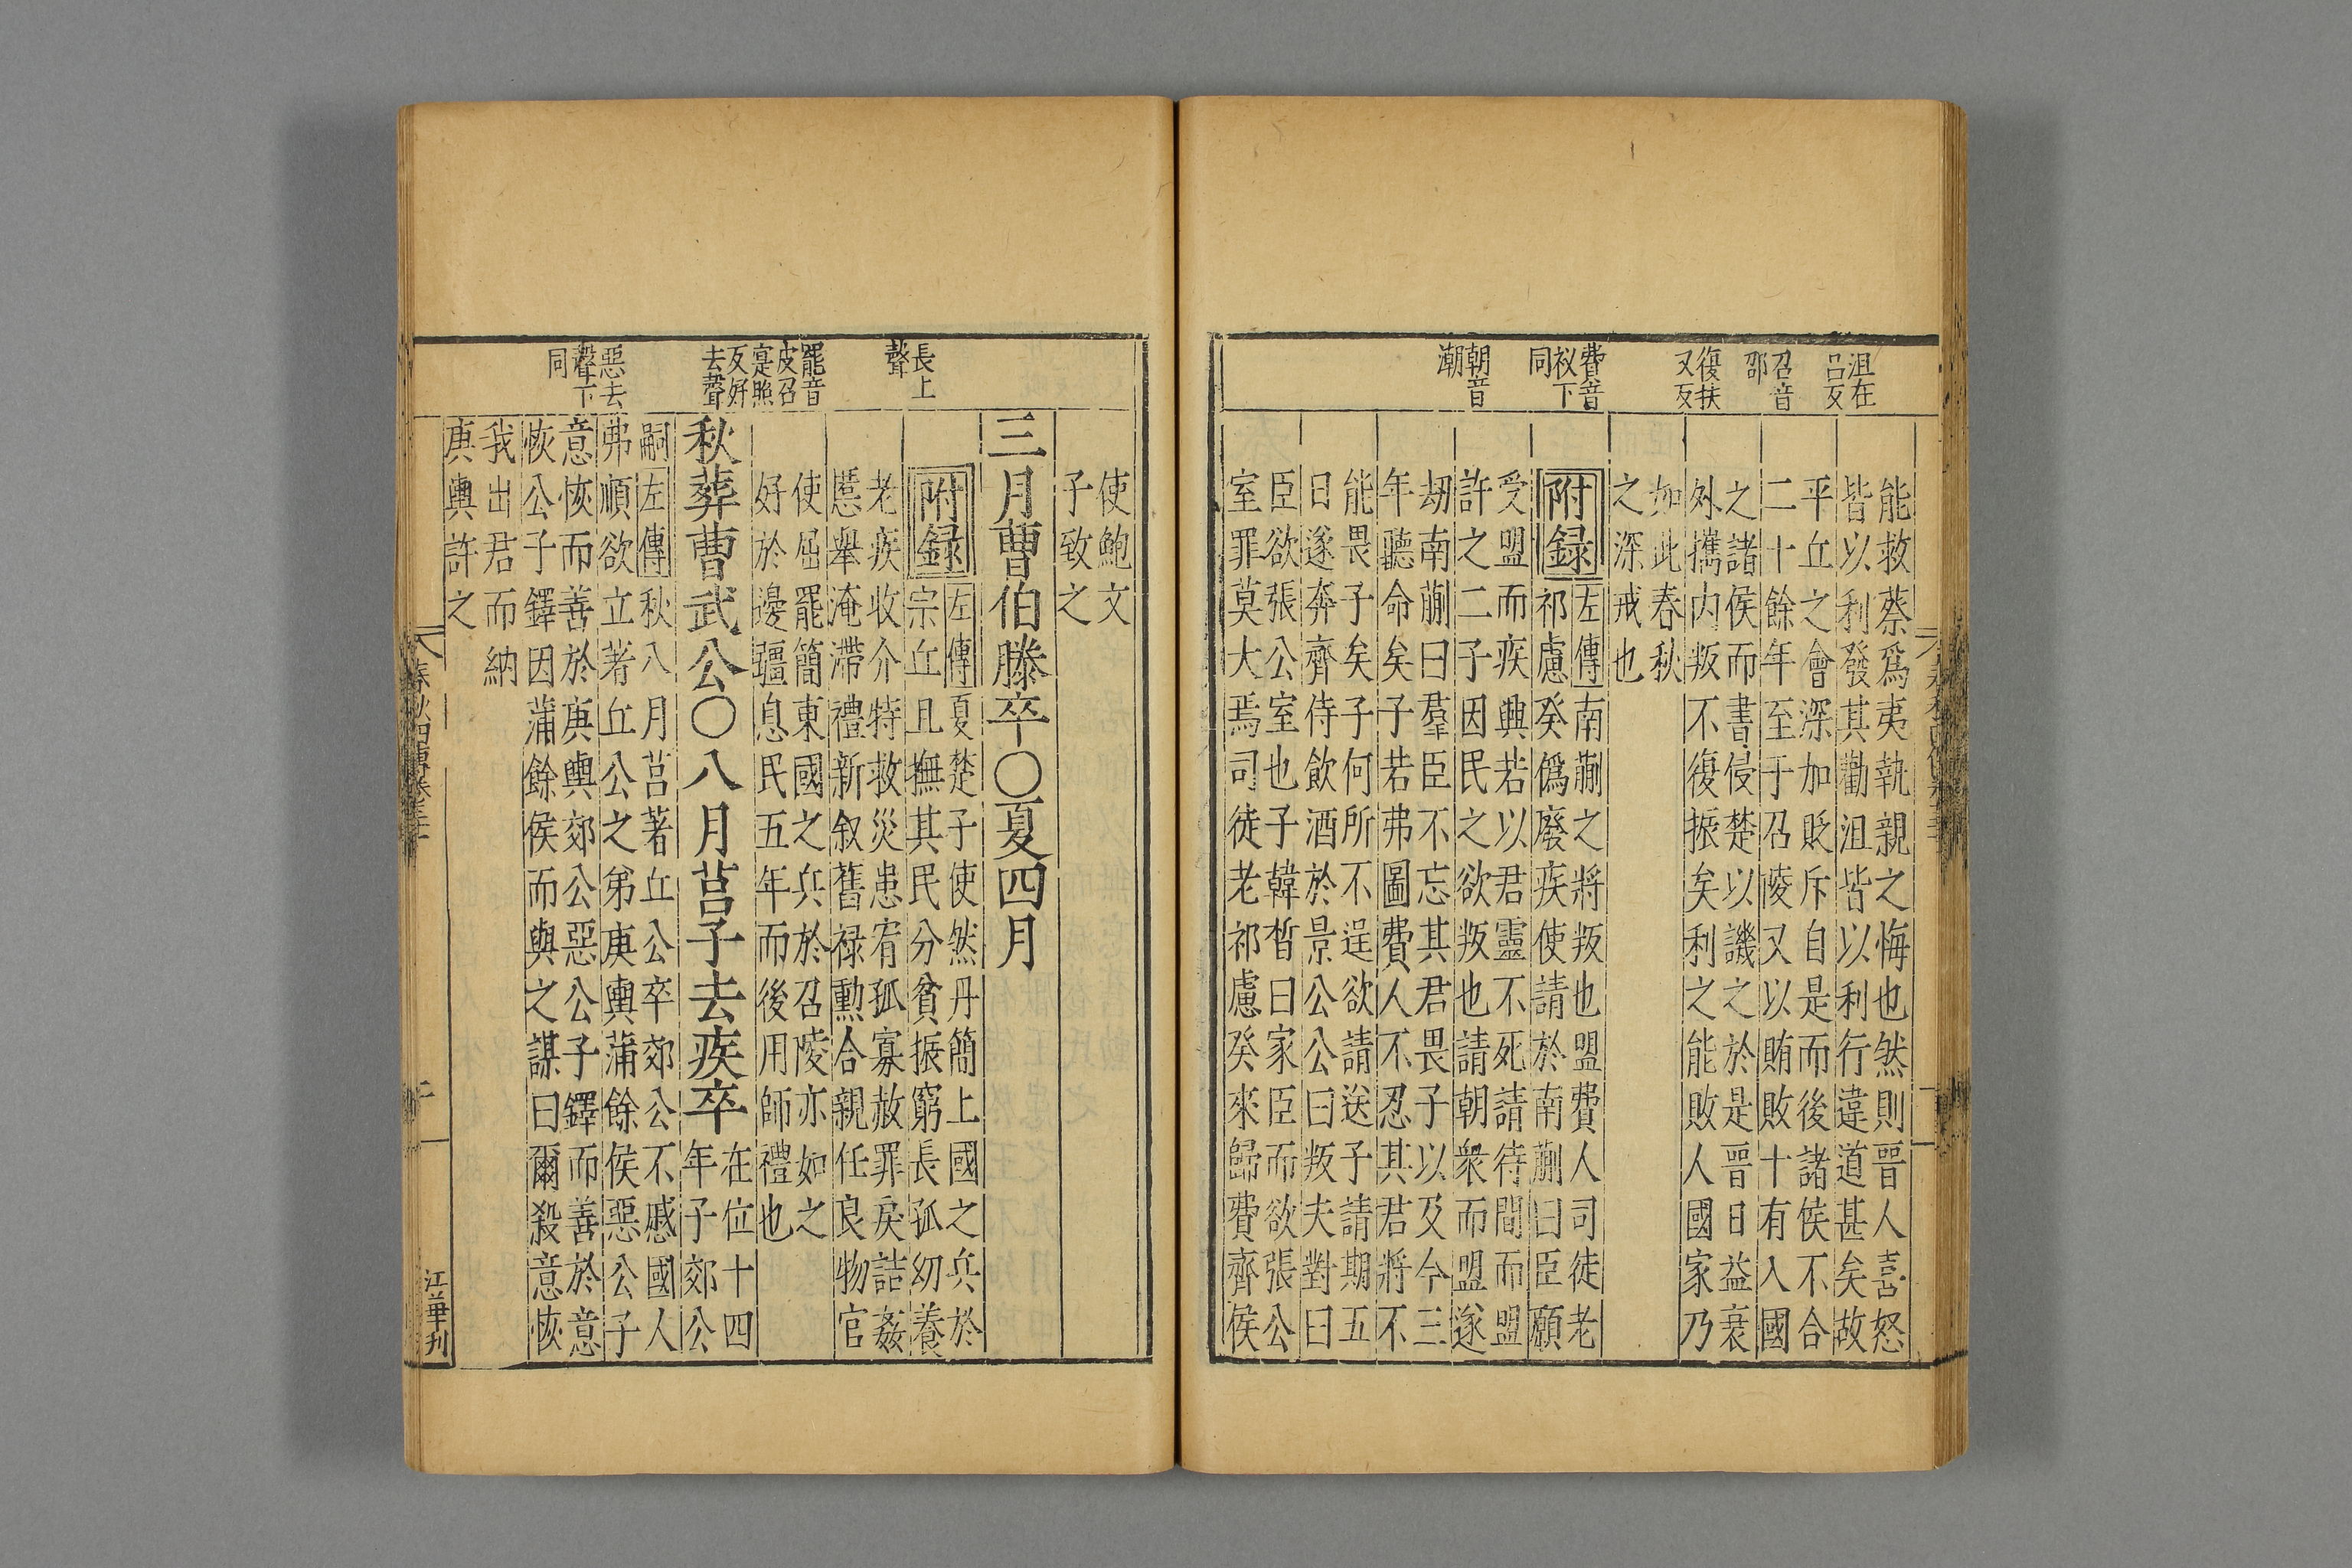 沮在
呂反
召音
邵
復扶
又反
費音
袐下
同
朝音
潮
能救蔡爲夷執親之悔也然則晉人喜怒
皆以利發其勸沮皆以利行違道甚矣故
平丘之會深加貶斥自是而後諸侯不合
二十餘年至于召陵又以賄敗十有入國
之諸侯而書侵楚以譏之於是晉日益衰
外攜内叛不復振矣利之能敗人國家乃
如此春秋
之深戒也
附録
左傳南蒯之將叛也盟費人司徒老
祁慮癸僞廢疾使請於南蒯曰臣願
受盟而疾興若以君靈不死請待間而盟
許之二子因民之欲叛也請朝衆而盟遂
刼南蒯曰羣臣不忘其君畏子以及今三
年聽命矣子若弗圖費人不忍其君將不
能畏子矣子何所不逞欲請送子請期五
日遂奔齊侍飲酒於景公公曰叛夫對曰
臣欲張公室也子韓晳曰家臣而欲張公
室罪莫大焉司徒老祁慮癸來歸費齊侯
長上
聲
罷音
皮召
寔照
反好
去聲
惡去
聲下
同
使鮑文
子致之
三月曹伯滕卒○夏四月
附録
左傳夏楚子使然丹簡上國之兵於
宗丘且撫其民分貧振窮長孤幼養
老疾收介特救災患宥孤寡赦罪戾詰姦
慝舉淹滯禮新叙舊禄勳合親任良物官
使屈罷簡東國之兵於召陵亦如之
好於邊疆息民五年而後用師禮也
秋葬曹武公○八月莒子去疾卒
在位十四
年子郊公
嗣左傳秋八月莒著丘公卒郊公不慼國人
弗順欲立著丘公之弟庚輿蒲餘侯惡公子
意恢而善於庚輿郊公惡公子鐸而善於意
恢公子鐸因蒲餘侯而與之謀曰爾殺意恢
我出君而納
庚輿許之
江華刋